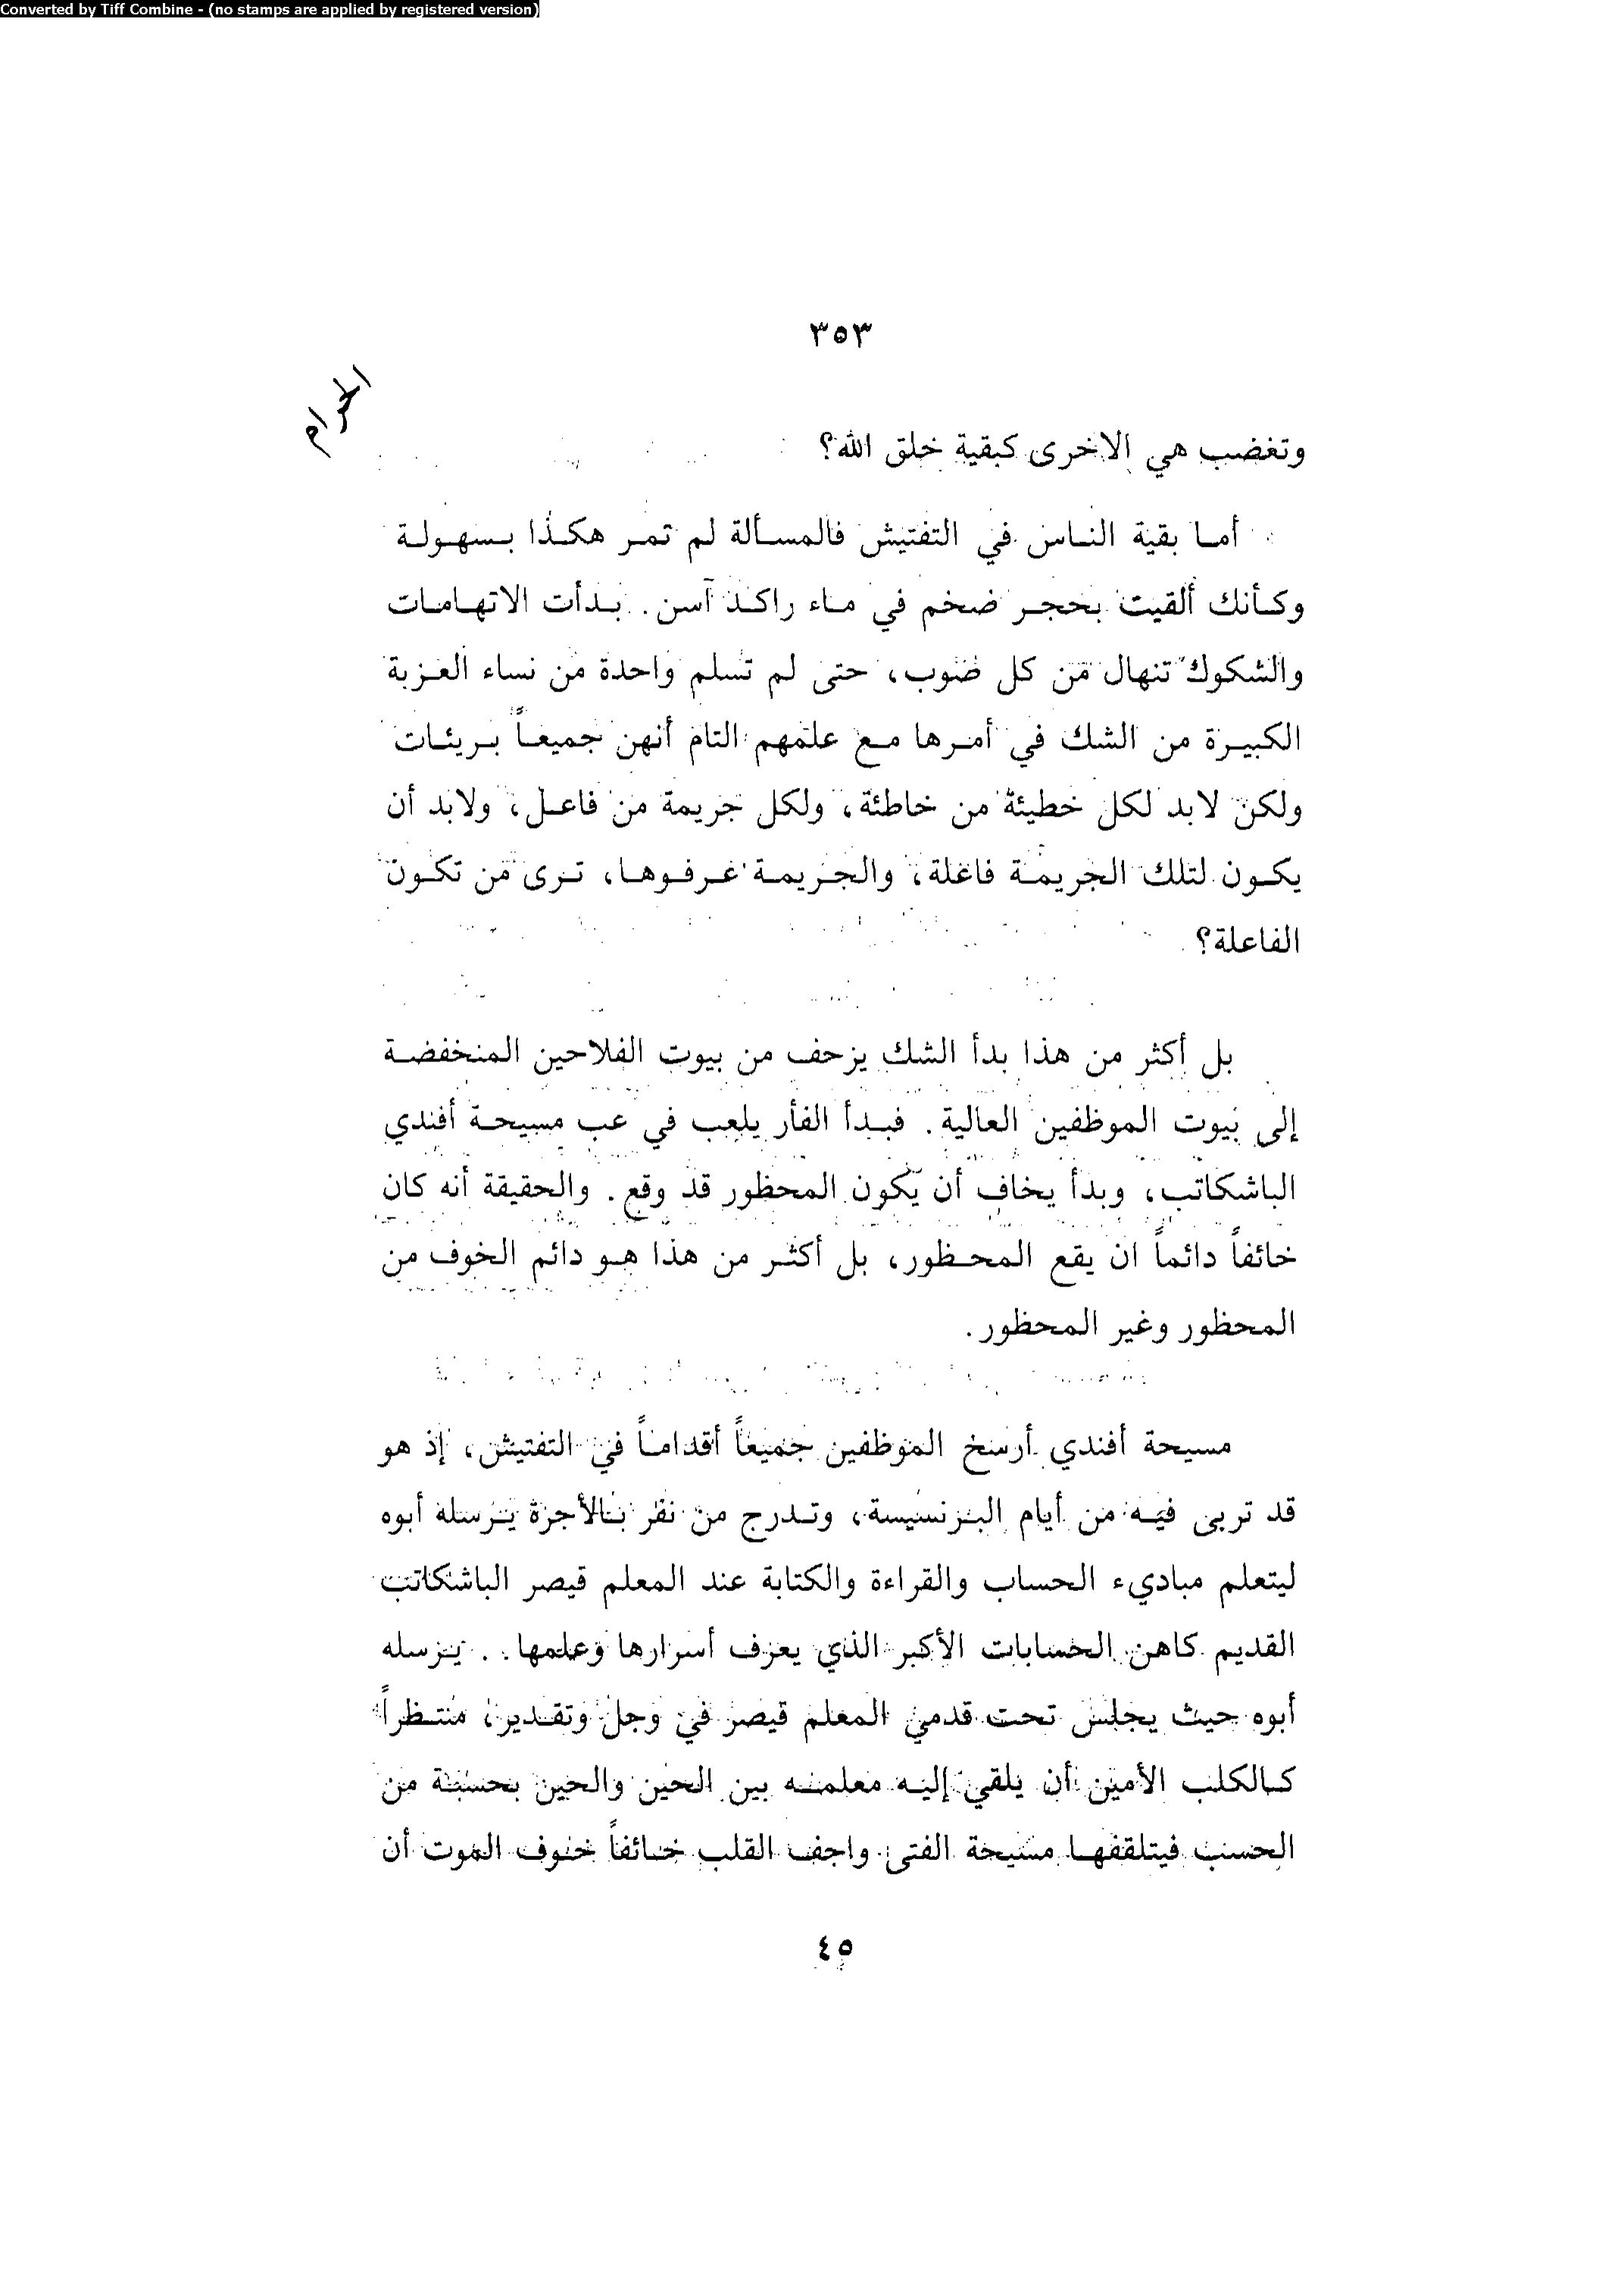 Converted by Tiff Combine - (no stamps are applied by registered version)
٣٥٣
الحرام
وتغضب هي الاخرى كبقية خلق الله؟
أما بقية الناس في التفتيش فالمسألة لم تمر هكذا بسهولة
وكأنك ألقيت بحجر ضخم في ماء راكد آسن. بدأت الاتهامات
والشكوك تنهال من كل صوب، حتى لم تسلم واحدة من نساء العزبة
الكبيرة من الشك في أمرها مع علمهم التام أنهن جميعاً بريئات
ولكن لابد لكل خطيئة من خاطئة، ولكل جريمة من فاعل، ولابد أن
يكون لتلك الجريمة فاعلة، والجريمة عرفوها، ترى من تكون
الفاعلة؟
بل أكثر من هذا بدأ الشك يزحف من بيوت الفلاحين المنخفضة
إلى بيوت الموظفين العالية. فبدأ الفأر يلعب في عب مسيحة أفندي
الباشكاتب، وبدأ يخاف أن يكون المحظور قد وقع. والحقيقة أنه كان
خائفاً دائماً ان يقع المحظور، بل أكثر من هذا هو دائم الخوف من
المحظور وغير المحظور.
مسيحة أفندي أرسخ الموظفين جميعاً أقداماً في التفتيش، إذ هو
قد تربى فيه من أيام البرنسيسة، وتدرج من نفر بالأجرة يرسله أبوه
ليتعلم مباديء الحساب والقراءة والكتابة عند المعلم قيصر الباشكاتب
القديم كاهن الحسابات الأكبر الذي يعرف أسرارها وعلمها.. يرسله
أبوه حيث يجلس تحت قدمي المعلم قيصر في وجل وتقدير، منتظراً
كالكلب الأمين أن يلقي إليه معلمه بين الحين والحين بحسبة من
الحسب فيتلقفها مسيحة الفتى واجف القلب خائفاً خوف الموت أن
٤٥